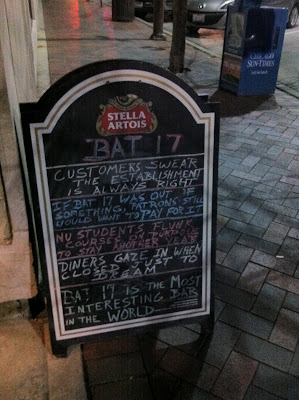 STELLA
ARTOIS
BAT 17
CUSTOMERS SWEAR
THE ESTABLISHMENT
IS ALWAYS RIGHT
IF BAT 17 WAS OUT OF
SOMETHING, PATRONS STILL
WOULD WANT TO PAY FOR IT
NU STUDENTS FLUNK
COURSES ON PURPOSE
TO STAY ANOTHER YEAR
DINERS GAZE IN WHEN
CLOSED JUST TO
DREAM
BAT 17 IS THE MOST
INTERESTING BAR
IN THE WORLD
CHICAGO
SUN-TIMES